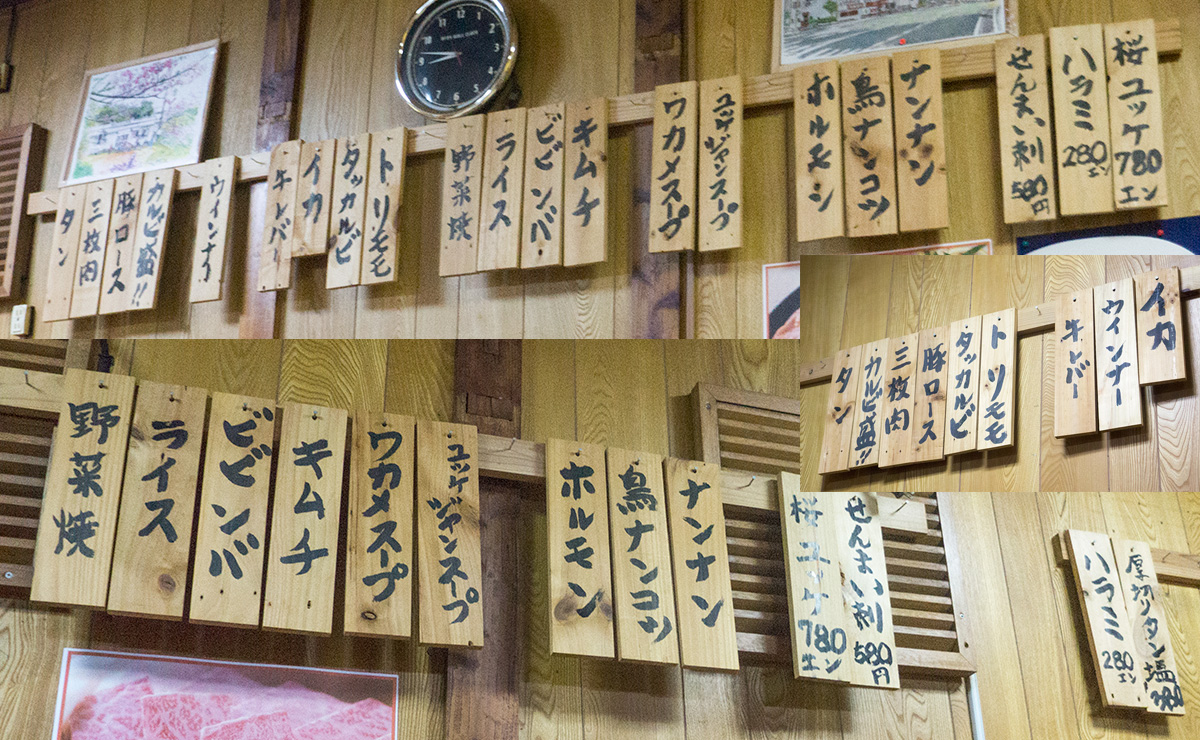 タン
三枚肉
豚ロース
カルビ盛!!
ウインナー
牛レバー
イカ
タッカルビ
トリモモ
野菜焼
ライス
ビビンバ
キムチ
ワカメスープ
ユッケジャンスープ
ホルモン
鳥ナンコツ
ナンナン
せんまい刺 580円
ハラミ 280エン
桜ユッケ 780エン
タン
カルビ盛!!
三枚肉
豚ロース
タッカルビ
トリモモ
牛レバー
ウインナー
イカ
野菜焼
ライス
ビビンバ
キムチ
ワカメスープ
ユッケジャンスープ
ホルモン
鳥ナンコツ
ナンナン
桜ユッケ 780エン
せんまい刺 580円
ハラミ 280エン
厚切りタン塩